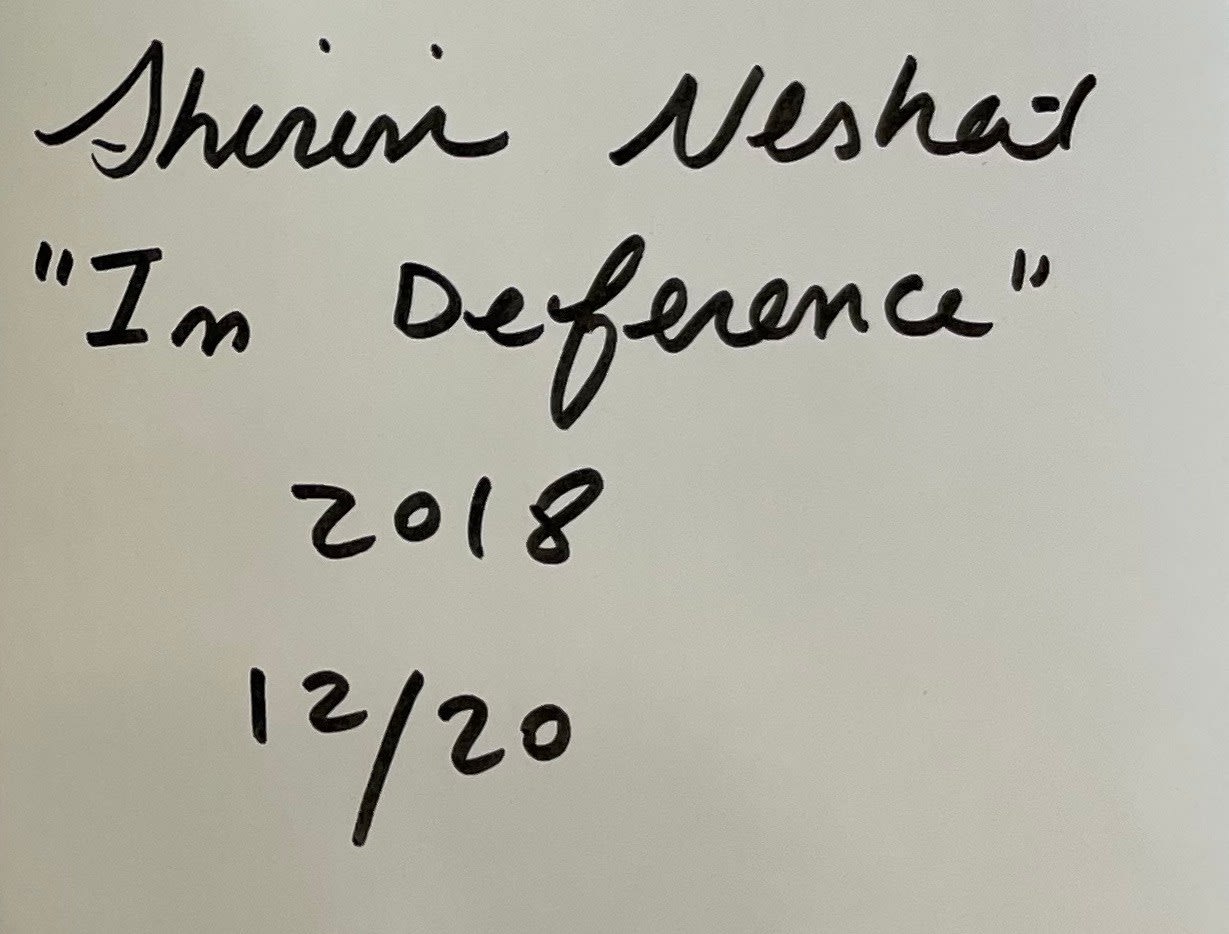 Shirin Neshat
"In Deference"
2018
12/20